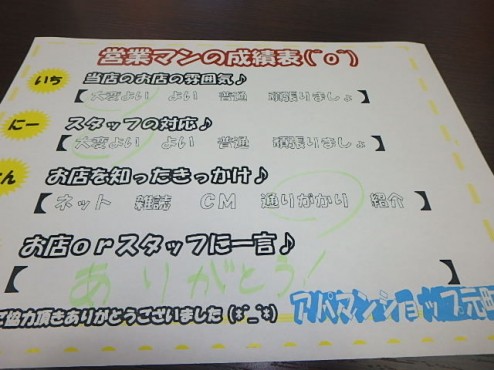 営業マンの成績表(^o^)
いち 当店のお店の雰囲気♪
【 大変よい よい 普通 頑張りましょ 】
にー スタッフの対応♪
【 大変よい よい 普通 頑張りましょ 】
さん お店を知ったきっかけ♪
【 ネット 雑誌 CM 通りがかり 紹介 】
お店orスタッフに一言♪
【 ありがとう!
ご協力頂きありがとうございました(*^_^*) アパマンショップ元町